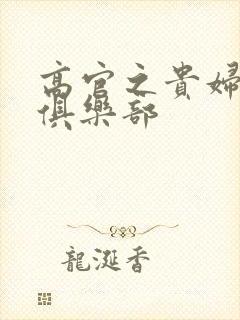 高官之貴婦
俱樂部
龍涎香